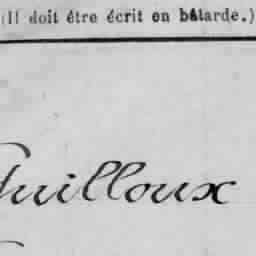 (Il doit être écrit en bâtarde.)
Guilloux